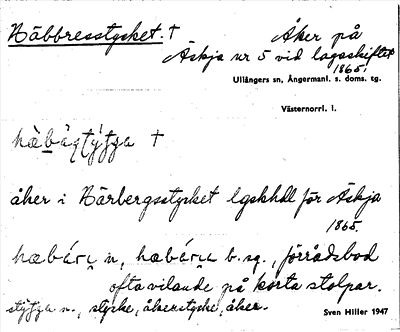 Häbbresstycket. †
Åker på
Äskja nr 5 vid lagaskiftet
1865.
Ullångers sn, Ångermanl. s. doms. tg.
Västernorrl. l.
†
åker i Härbergsstycket lgskhdl för Äskja
1865.
n, b. sg., förrådsbod
ofta vilande på korta stolpar.
n., stycke, åkerstycke, åker.
Sven Hiller 1947